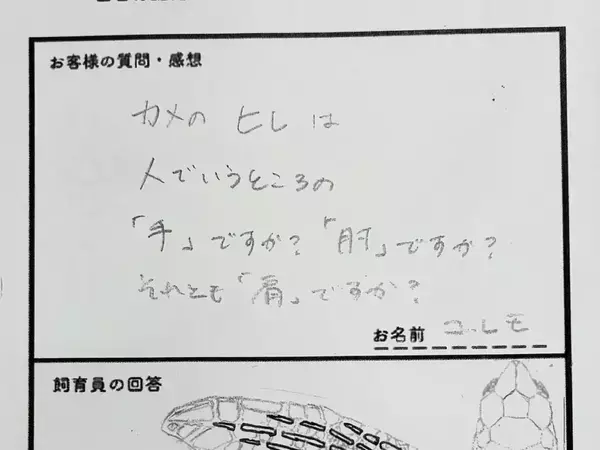 お客様の質問・感想
カメの ヒレ は
人でいうところの
「手」ですか？「肘」ですか？
それとも「肩」ですか？
お名前 コレモ
飼育員の回答